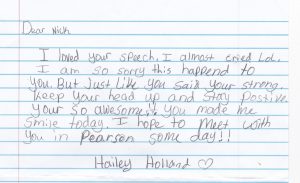 Dear Nick,
I loved your speech. I almost cried Lol.
I am so sorry this happend to
you. But Just like you said your strong.
Keep your head up and stay Postive
Your so awesome!! you made me
smile today. I hope to meet with
you in Pearson some day!!
Hailey Holland ♡